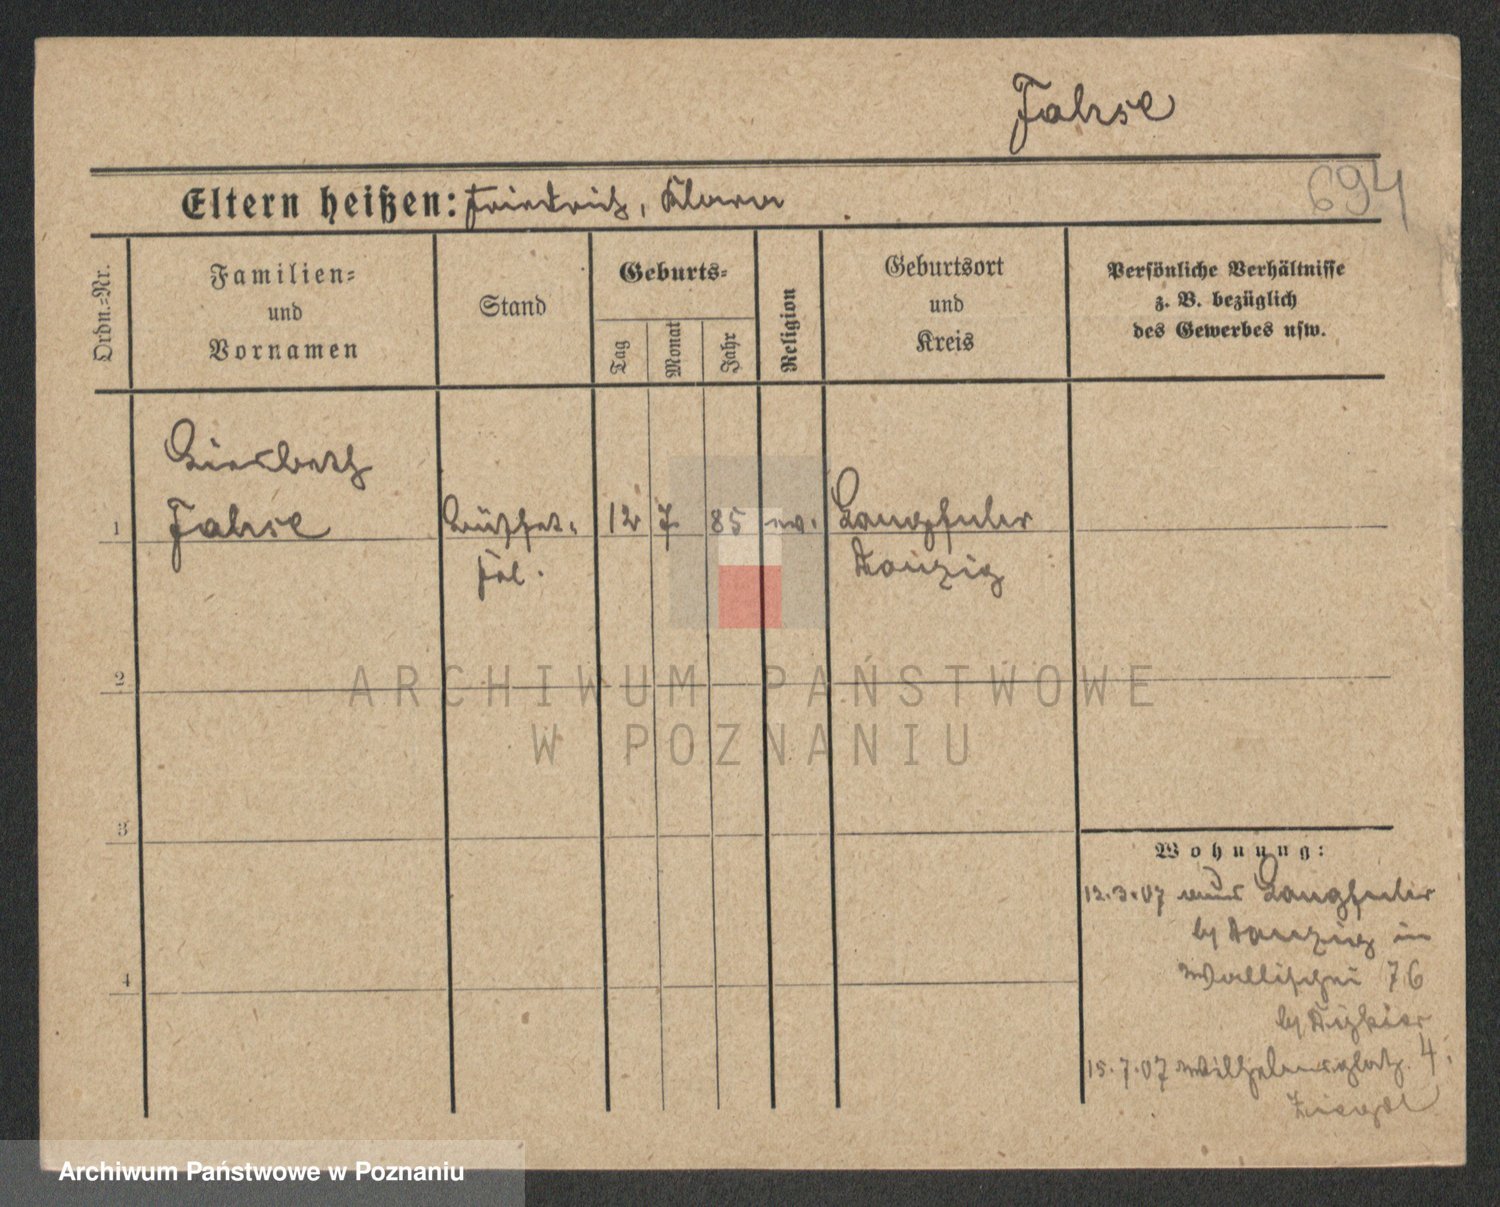 Fahse
694
Eltern heißen: Friedrich, Klara
Ordn.=Nr.
Familien=
und
Vornamen
Stand
Geburts=
Tag
Monat
Jahr
Religion
Geburtsort
und
Kreis
Persönliche Verhältnisse
z. B. bezüglich
des Gewerbes usw.
Liesbeth
1 Fahse Büffet= 12 7. 85 ev. Langfuhr
frl. Danzig
2
3
4
Wohnung:
12.3.07 aus Langfuhr
b/ Danzig in
Wallischei 76
b/
15.7.07 Wilhelmsplatz 4.
ARCHIWUM PAŃSTWOWE
W POZNANIU
Archiwum Państwowe w Poznaniu